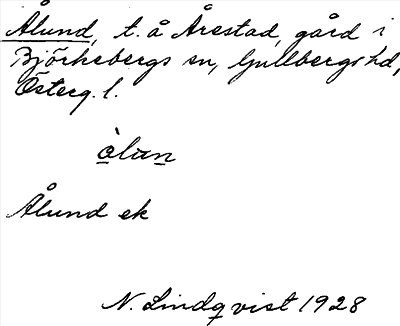 Ålund, t. å Årestad, gård i
Björkebergs sn, Gullbergs hd,
Österg. l.
òlun
Ålund ek
N. Lindqvist 1928